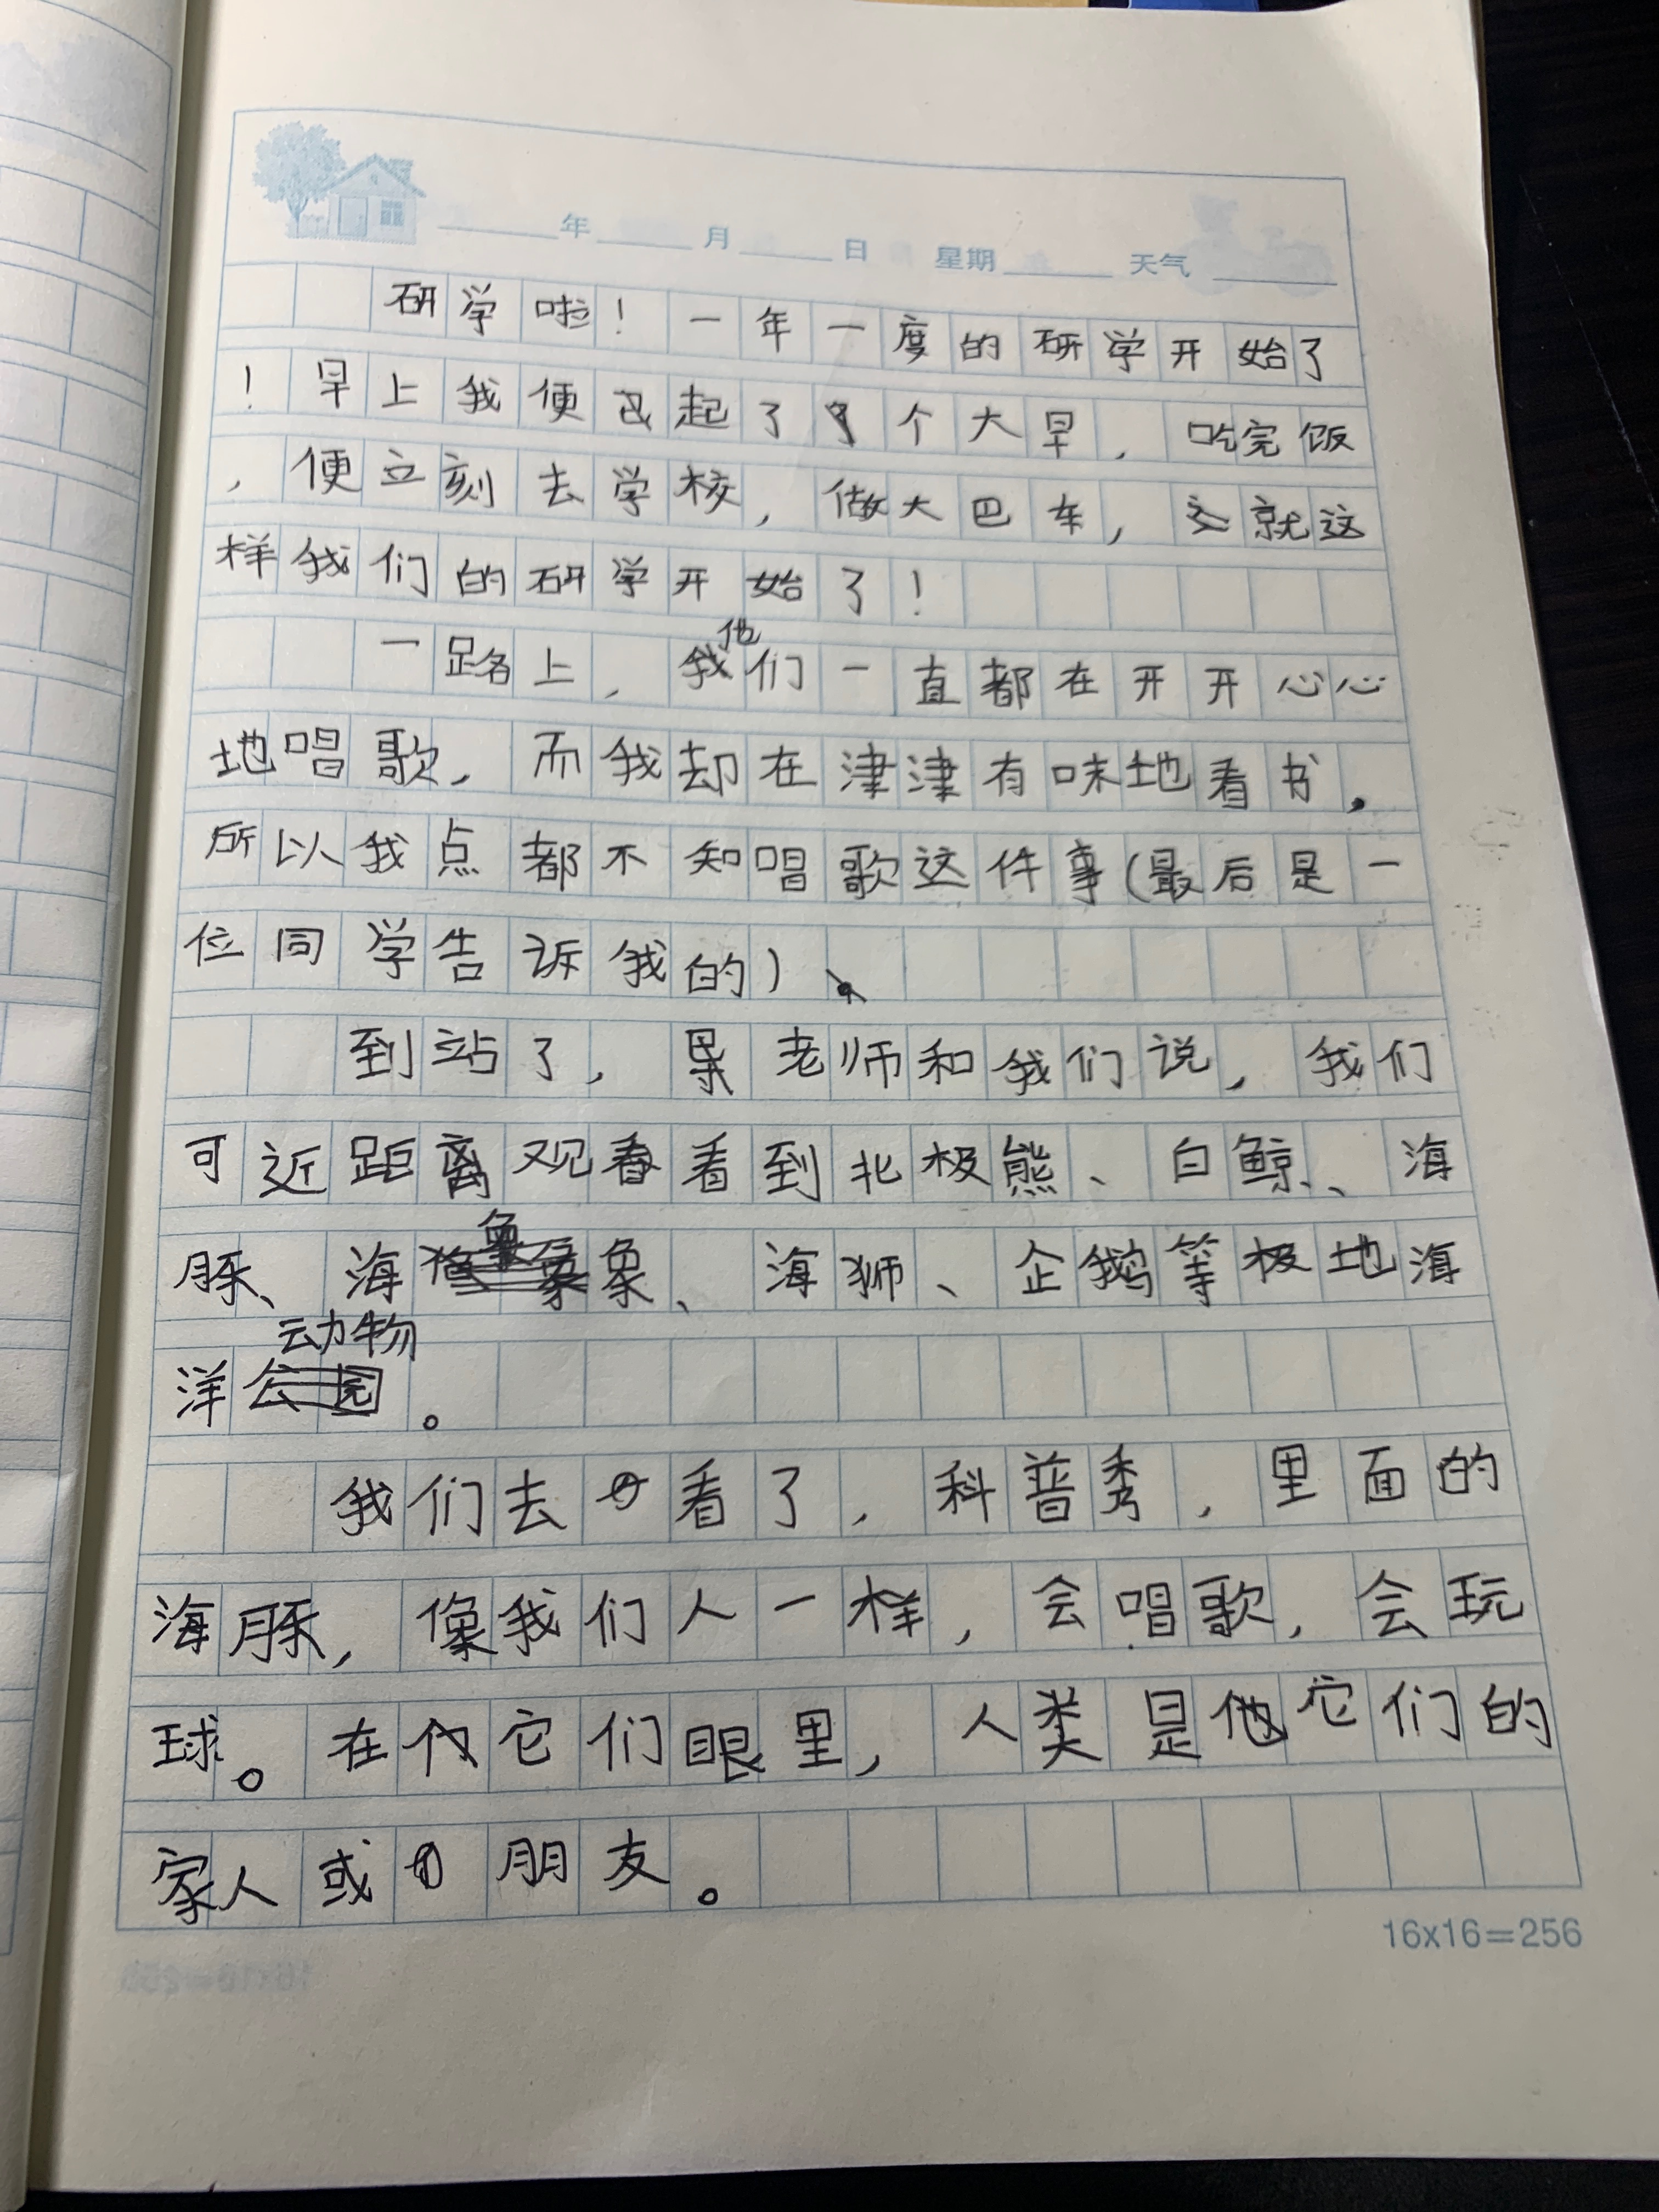 年 月 日 星期 天气
研学啦！一年一度的研学开始了
！早上我便起了个大早，吃完饭
，便立刻去学校，做大巴车，就这
样我们的研学开始了！
一路上，他们一直都在开开心心
地唱歌，而我却在津津有味地看书，
所以我点都不知唱歌这件事（最后是一
位同学告诉我的）。
到站了，老师和我们说，我们
可近距离观看看到北极熊、白鲸、海
豚、海象、海狮、企鹅等极地海
洋动物。
我们去看了，科普秀，里面的
海豚，像我们人一样，会唱歌，会玩
球。在它们眼里，人类是它们的
家人或朋友。
16x16=256